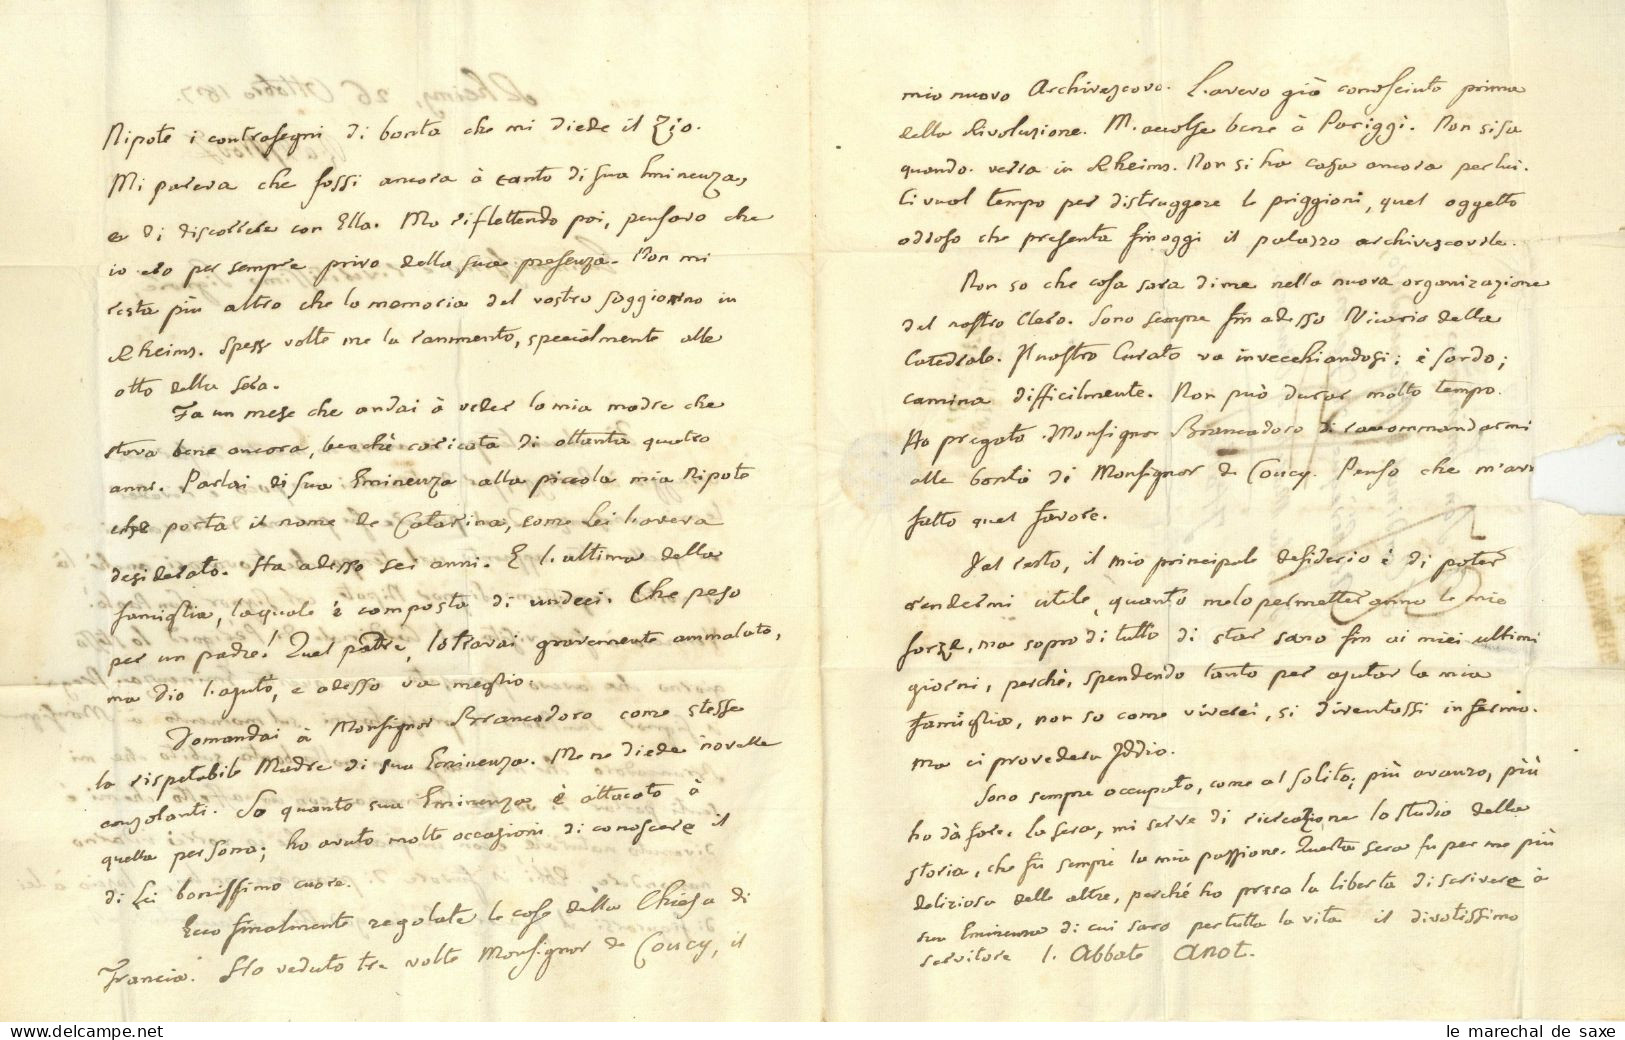 Nipote i contrasegni di bonta che mi diede il Zio.
Mi pareva che fossi ancora à canto di sua Eminenza,
e di discorrere con Ella. Ma riflettendo poi, pensavo che
io ero per sempre privo della sua presenza. Non mi
resta più altro che la memoria del vostro soggiorno in
Rheims. Spesse volte me la rammento, specialmente alle
otto della sera.
Fa un mese che andai à veder la mia madre che
stava bene ancora, benchè caricata di ottanta quatro
anni. Parlai di sua Eminenza alla piccola mia Nipote
che porta il nome de Catarina, come Lei l'aveva
desiderato. Ha adesso sei anni. E l'ultima della
famiglia, laquale è composta di undeci. Che peso
per un padre! Quel padre, lo trovai gravemente ammalato,
ma dio l'ajutò, e adesso va meglio.
Domandai à Monsignor Brancadoro come stesse
la rispetabile Madre di sua Eminenza. Me ne diede novelle
consolanti. So quanto sua Eminenza è attacato à
quella persona; ho avuto molte occasioni di conoscere il
di Lei bonissimo cuore.
Ecco finalmente regolate le cose della Chiesa di
Francia. Ho veduto tre volte Monsignor de Coucy, il
mio nuovo Archivescovo. L'avevo già conosciuto prima
della Rivoluzione. M'accolse bene à Pariggi. Non si sa
quando verra in Rheims. Non si ha casa ancora per lui.
Ci vuol tempo per distruggere le priggioni, quel oggetto
odioso che presenta fin oggi il palazzo archivescovile.
Non so che cosa sara di me nella nuova organizazione
del nostro Clero. Sono sempre fin adesso Vicario della
Catedrale. Il nostro Curato va invecchiandosi: è sordo;
camina difficilmente. Non può durar molto tempo.
Ho pregato Monsignor Brancadoro di raccommandarmi
alle bontà di Monsignor de Coucy. Penso che m'avr
fatto quel favore.
Del resto, il mio principale desiderio è di poter
rendermi utile, quanto melo permetteranno le mie
forze, ma sopra di tutto di star sano fin ai miei ultimi
giorni, perchè, spendendo tanto per ajutar la mia
famiglia, non so come viverei, si diventassi infermo.
ma ci provedera Iddio.
Sono sempre occupato, come al solito; più avanzo, più
ho dà fare. La sera, mi serve di ricreazione lo studio della
storia, che fù sempre la mia passione. Questa sera fu per me più
deliziosa delle altre, perchè ho presa la libertà di scrivere à
sua Eminenza di cui saro per tutta la vita il divotissimo
servitore l'Abbate Anot.
le marechal de saxe
www.delcampe.net